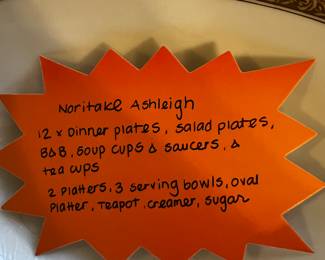 Noritake Ashleigh
12 x Dinner plates, salad plates,
B&B, soup cups & saucers, &
tea cups
2 Platters, 3 serving bowls, oval
Platter, Teapot, creamer, sugar